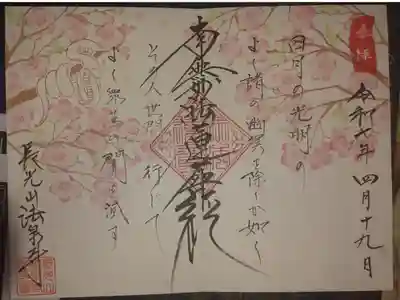 奉拝
令和七年 四月十九日
日月の光明の
よく諸の幽冥を除くが如く
南無妙法蓮華経
この人世間に行じて
よく衆生の闇を滅す
長光山法泉寺